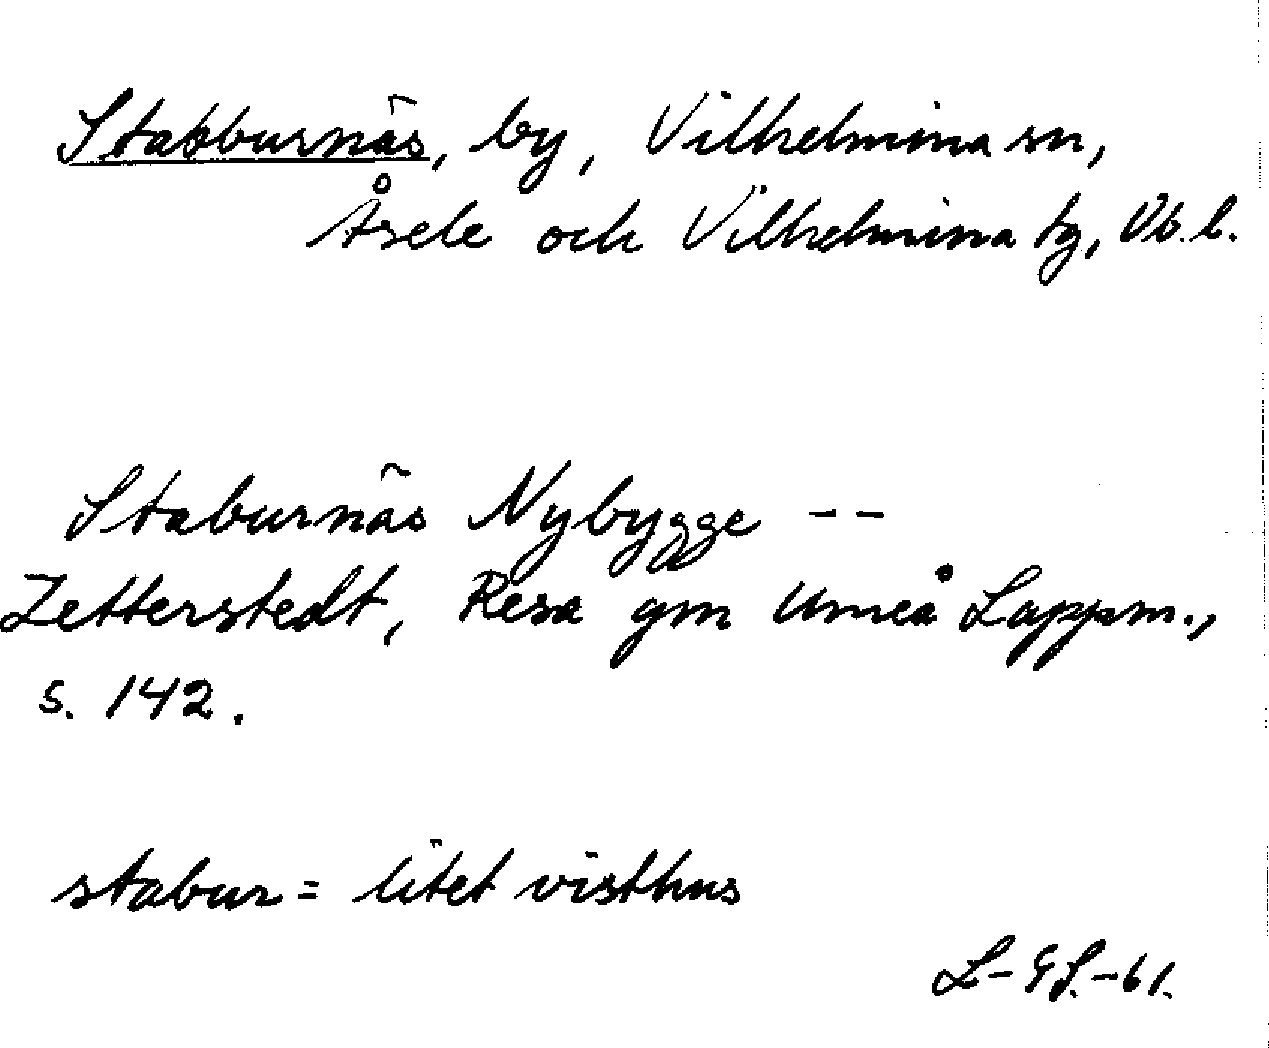 Stabburnäs, by, Vilhelmina sn,
Åsele och Vilhelmina tg, Vb. l.
Staburnäs Nybygge --
Zetterstedt, Resa gm Umeå Lappm.,
s. 142.
stabur = litet visthus
L-GS.-61.